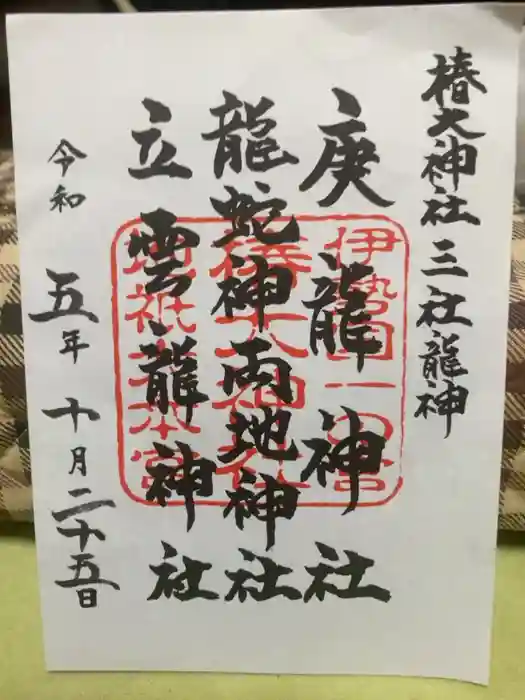 椿大神社三社龍神
庚龍神社
龍蛇神両地神社
立雲龍神社
令和五年十月二十五日
伊勢国一の宮
椿大神社
地祇大本宮